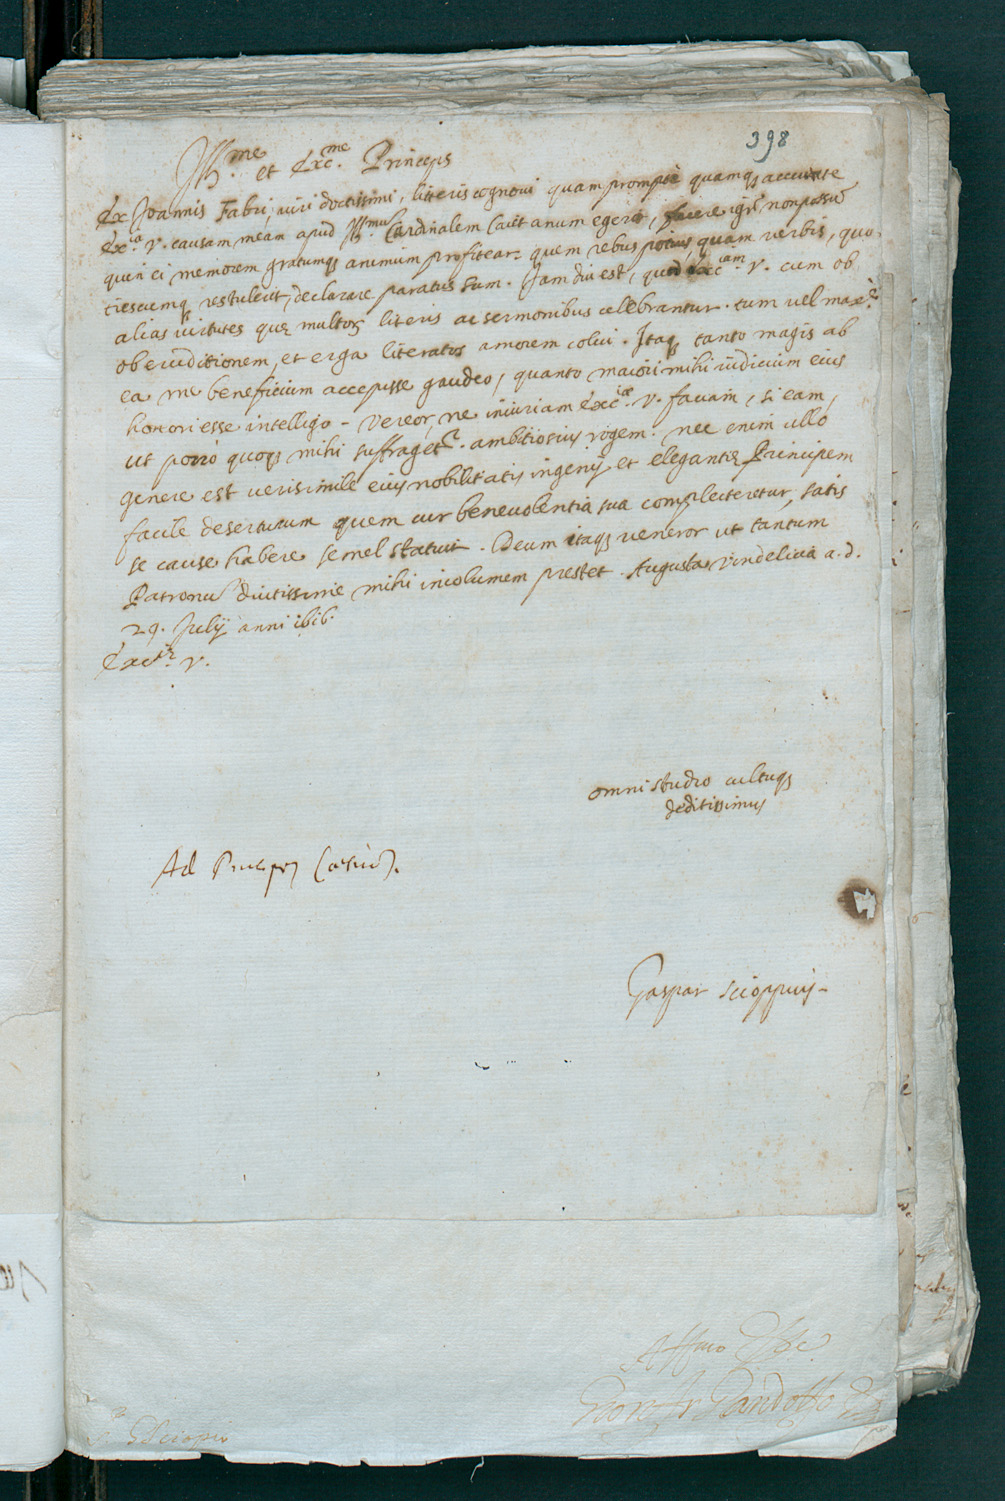 398
Ill.me et Exc.me Princeps
Ex Joannis Fabri, viri doctissimi, litteris cognovi quam promptè quamq; accurate
Ex.a V. causam meam apud Ill.mum Cardinalem Caietanum egerit, facere igr non possu
quin ei memorem gratumq; animum profitear: quem rebus potius quam verbis, quo-
tiescumq; res tulerit, declarare paratus sum. Jam diu est, quod Exc.iam V. cum ob
alias virtutes quę multor; literis ac sermonibus celebrantur. tum vel maxe
ob eruditionem, et erga literatos amorem colui. Itaq; tanto magis ab
ea me beneficium accepisse gaudeo, quanto maiori mihi iudicium eius
honori esse intelligo. Vereor, ne iniuriam Exc.iæ V. faciam, si eam,
ut porrò quoq; mihi suffraget.r ambitiosius rogem. nec enim ullo
genere est verisimile eius nobilitatis ingenij et elegantię Principem
facile deserturum quem cur benevolentia sua complecteretur, satis
se causę habere semel statuit. Deum itaq; veneror ut tantum
Patronu diutissimè mihi incolumem prestet. Augusta Vindelicia a. d.
29. Julij anni 1616.
Exc.iæ V.
omni studio cultuq;
deditissimus
Ad Caesiu.
Gaspar Scioppius